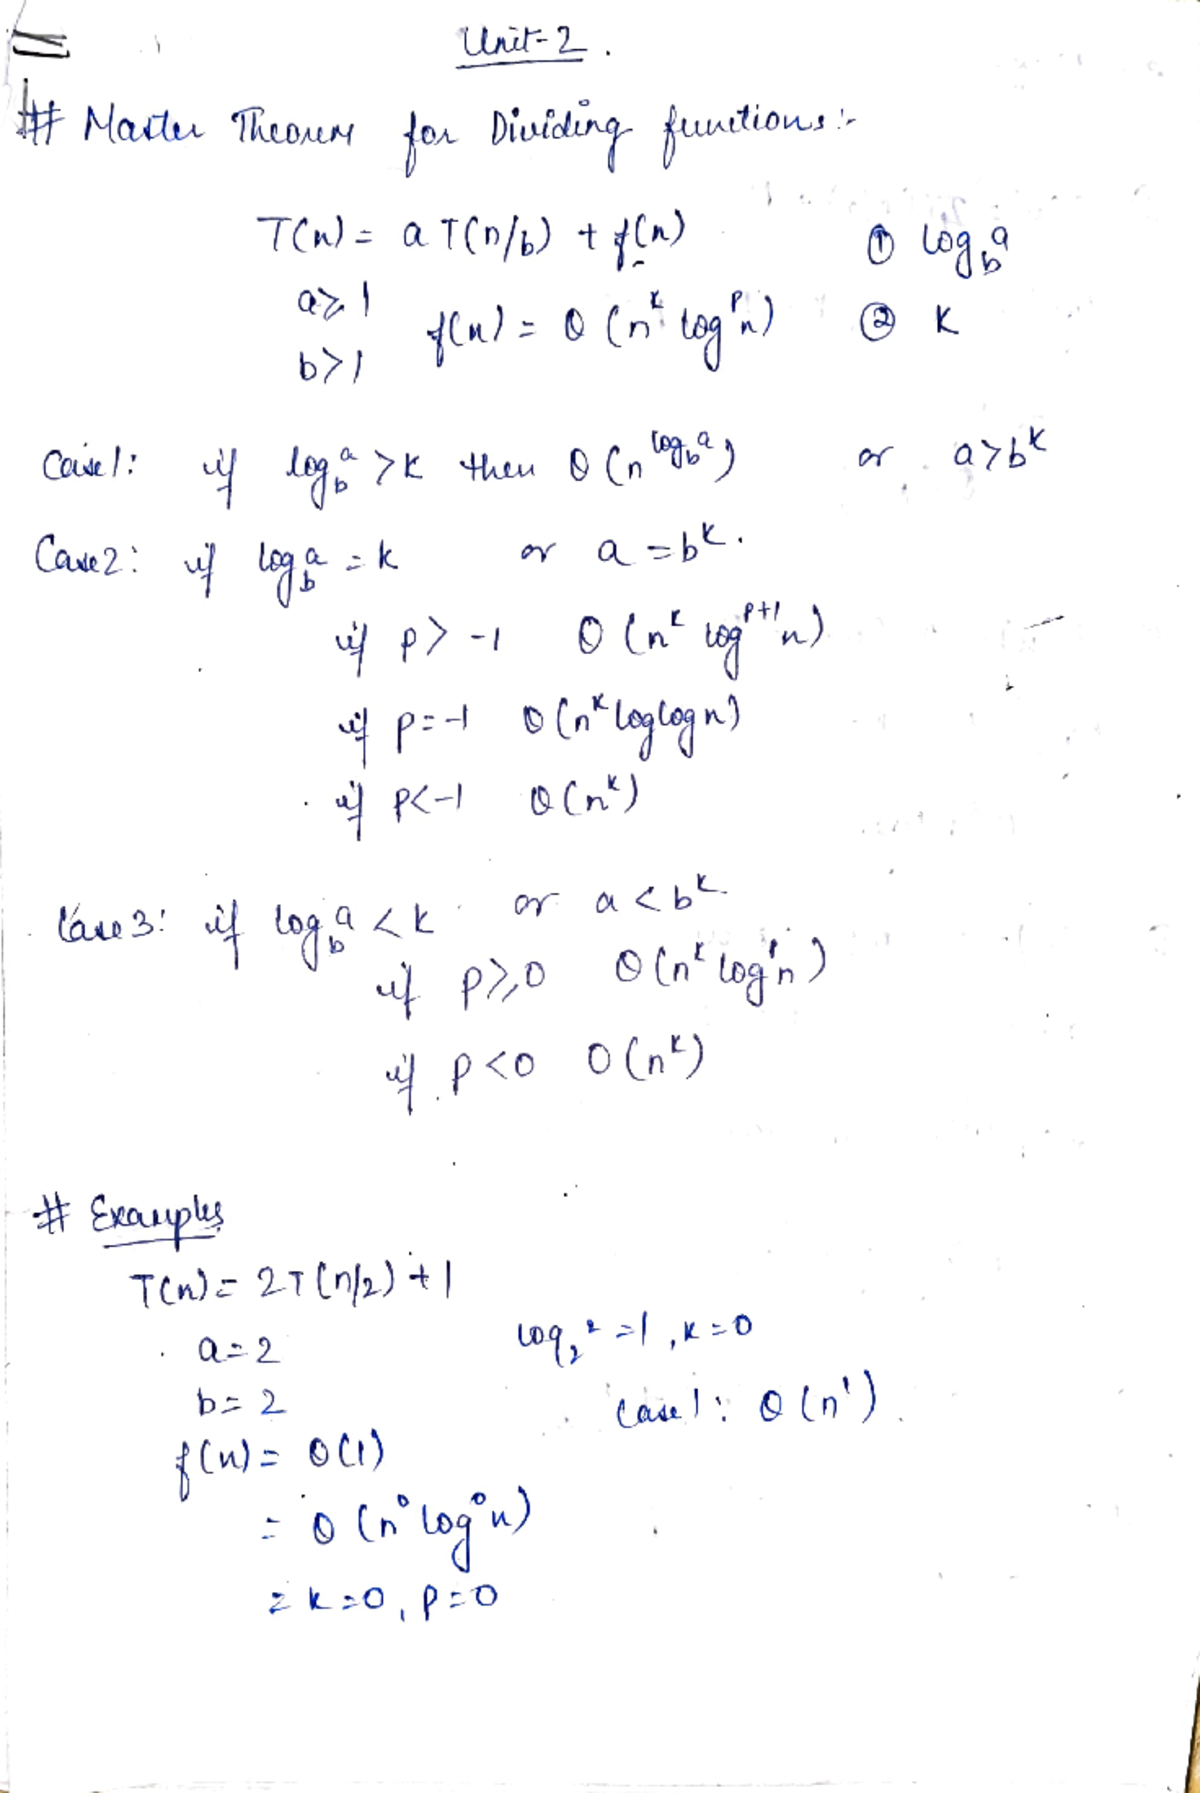 Unit-2.
# Master Theorem for Dividing functions:-
T(n) = a T(n/b) + f(n) ① log_b a
a ≥ 1
f(n) = θ (n^k log^p n) ② K
b > 1
Case 1: if log_b a > k then θ (n^(log_b a)) or a > b^k
Case 2: if log_b a = k or a = b^k.
if p > -1 θ (n^k log^(p+1) n)
if p = -1 θ (n^k log log n)
if p < -1 θ (n^k)
Case 3: if log_b a < k or a < b^k
if p ≥ 0 θ (n^k log^p n)
if p < 0 O (n^k)
# Examples
T(n) = 2T (n/2) + 1
a = 2 log_2 2 = 1, k = 0
b = 2 Case 1: θ (n^1).
f(n) = θ(1)
= θ (n^0 log^0 n)
= k = 0, p = 0